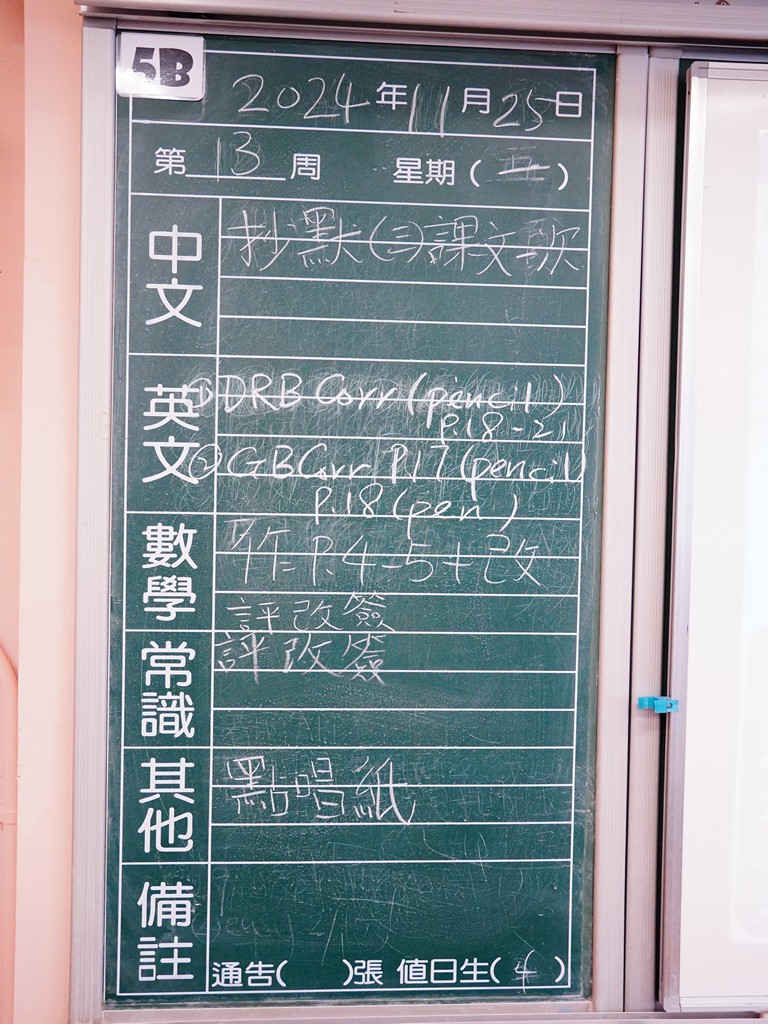 5B
2024年11月25日
第13周 星期(五)
中文
抄默(三)課文歌
英文
①DRB Corr (pencil)
P.18-21
②GB Corr P.17 (pencil)
P.18 (pen)
數學
P.4-5+改
評改簽
常識
評改簽
其他
點唱紙
備註
通告( )張 值日生(4)